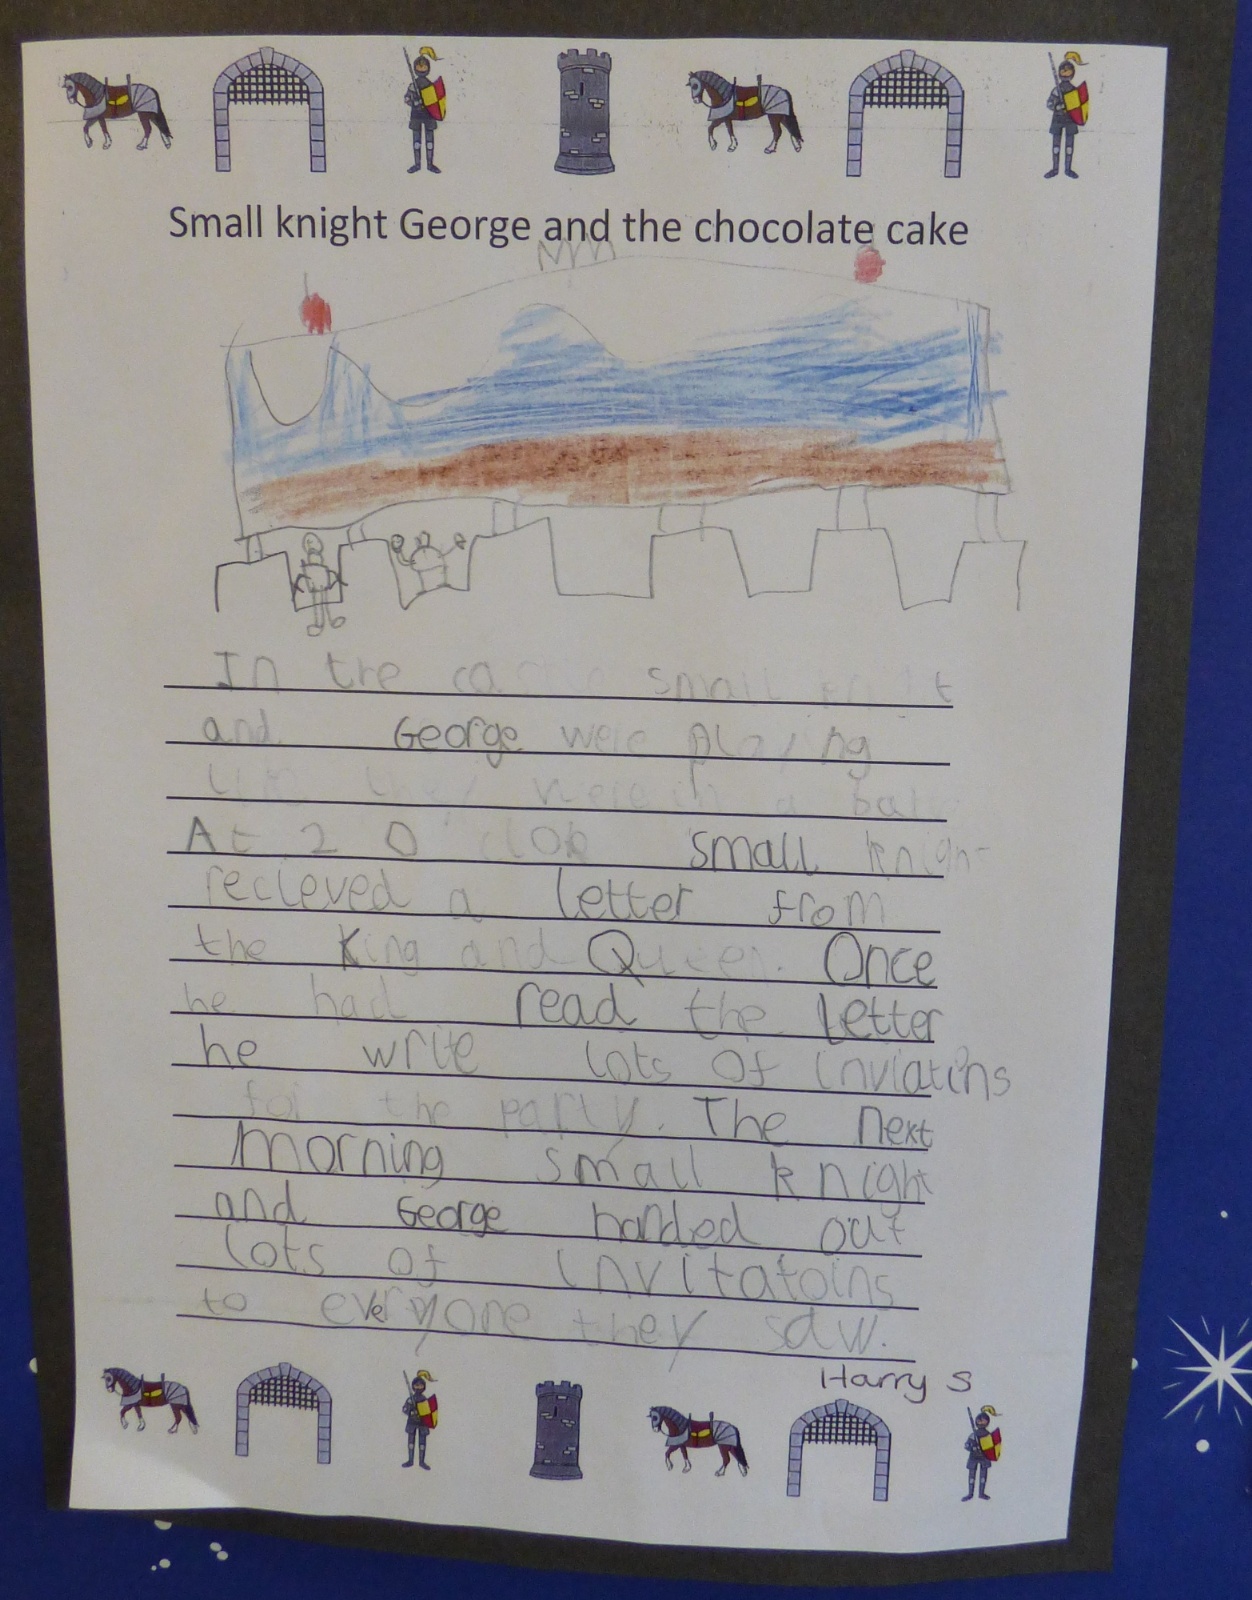 Small knight George and the chocolate cake
In the small
and George were playing
they were in a
At 2 O clok small knigh
recieved a letter from
the King and Queen. Once
he had read the letter
he write lots of inviatins
for the party. The next
morning small knight
and George handed out
lots of invitatoins
to everyone they saw.
Harry S